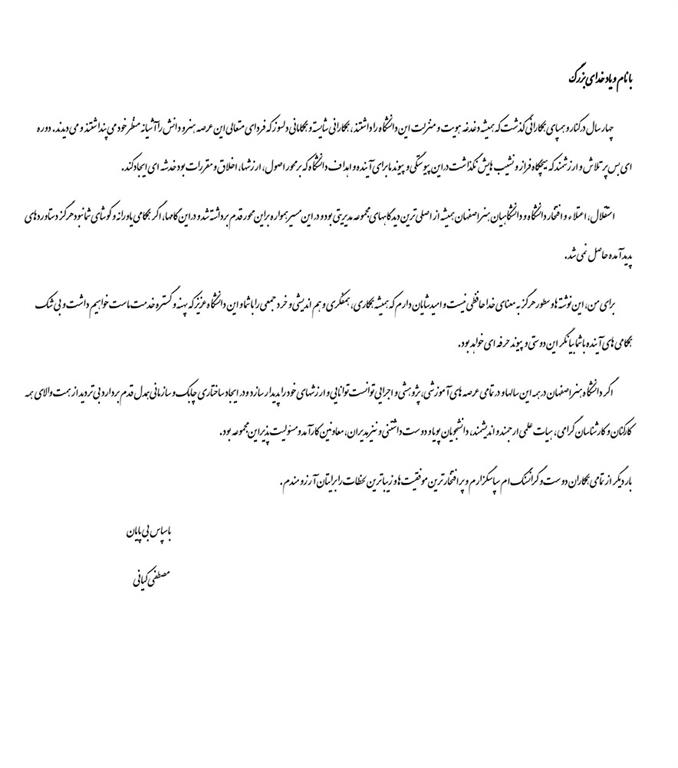 با نام و یاد خدای بزرگ
چهار سال در کنار و همپای همکارانی گذشت که همیشه دغدغه هویت و منزلت این دانشگاه را داشتند، همکارانی شایسته و همگامانی دلسوز که فردای متعالی این عرصه هنر و دانش را آشیانه منظر خود می پنداشتند و می دیدند. دوره
ای بس پر تلاش و ارزشمند که هیچگاه فراز و نشیب هایش نگذاشت در این پیوستگی و پیوند ما برای آینده و اهداف دانشگاه که بر محور اصول، ارزشها، اخلاق و مقررات بود خدشه ای ایجاد کند.
استقلال، اعتلاء و افتخار دانشگاه و دانشگاهیان هنر اصفهان همیشه از اصلی ترین دیدگاههای مجموعه مدیریتی بود و در این مسیر همواره بر این محور قدم برداشته شد و در این گامها، اگر همگامی یاورانه و کوشای شما نبود هرگز دستاوردهای
پدید آمده حاصل نمی شد.
برای من، این نوشته ها و سطور هرگز به معنای خداحافظی نیست و امید شایان دارم که همیشه همکاری، همفکری و هم اندیشی و خرد جمعی را با شما و این دانشگاه عزیز که پهنه و گستره خدمت ماست خواهیم داشت و بی شک
همگامی های آینده با شما بیانگر این دوستی و پیوند حرفه ای خواهد بود.
اگر دانشگاه هنر اصفهان در همه این سالها و در تمامی عرصه های آموزشی، پژوهشی و اجرایی توانست توانایی و ارزشهای خود را پدیدار سازد و در ایجاد ساختاری چابک و سازمانی همدل قدم بردارد بی تردید از همت والای همه
کارکنان و کارشناسان گرامی، هیات علمی ارجمند و اندیشمند، دانشجویان پویا و دوست داشتنی و نیز مدیران، معاونین کارآمد و مسئولیت پذیر این مجموعه بود.
بار دیگر از تمامی همکاران دوست و گرانسنگ ام سپاسگزارم و پر افتخارترین موفقیت ها و زیباترین لحظات را برایتان آرزومندم.
با سپاس بی پایان
مصطفی کیانی